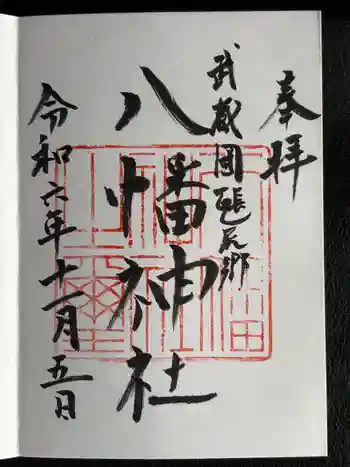 奉拝
武蔵国瓺尻郷
八幡神社
令和六年十一月五日